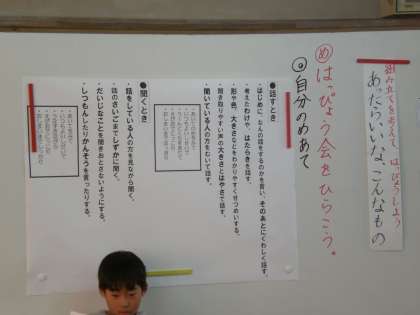 組み立てを考えて、はっぴょうしよう
あったらいいな、こんなもの
め はっぴょう会をひらこう。
◎自分のめあて
●話すとき
・はじめに、なんの話をするのかを言い、そのあとにくわしく話す。
・考えたわけや、はたらきを話す。
・形や色、大きさなどをわかりやすくせつめいする。
・聞き取りやすい声の大きさとはやさで話す。
・聞いている人の方をむいて話す。
●聞くとき
・話をしている人の方を見ながら聞く。
・話のさいごまでしずかに聞く。
・だいじなことを聞きおとさないようにする。
・しつもんしたりかんそうを言ったりする。